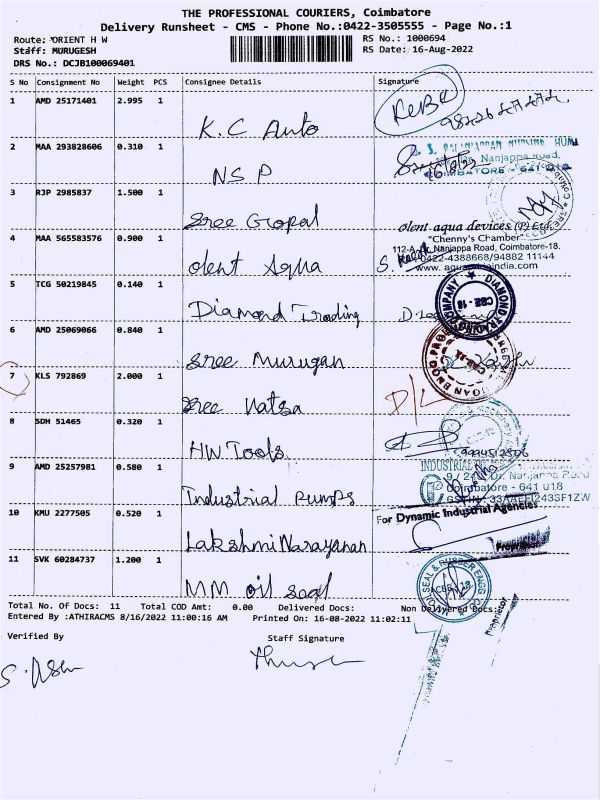 THE PROFESSIONAL COURIERS, Coimbatore
Delivery Runsheet - CMS - Phone No.:0422-3505555 - Page No.:1
Route: ORIENT H W
RS No.: 1000694
Staff: MURUGESH
RS Date: 16-Aug-2022
DRS No.: DCJB100069401
S No Consignment No Weight PCS Consignee Details Signature
1 AMD 25171401 2.995 1 K.C Auto
2 MAA 293828606 0.310 1 NSP
Nanjappa Road,
COIMBATORE - 641 018
3 RJP 2985837 1.500 1 Sree Gopal
olent aqua devices (P) Ltd.
"Chenny's Chamber"
4 MAA 565583576 0.900 1 Olent Aqua
Nanjappa Road, Coimbatore-18.
0422-4388668/94882 11144
5 TCG 50219845 0.140 1 Diamond Trading
DIAMOND TRADING COMPANY
CBE - 18
6 AMD 25069066 0.840 1 Sree Murugan
7 KLS 792869 2.000 1 Sree Natsa
D/L
8 SDH 51465 0.320 1 HW Tools
INDUSTRIAL
9 AMD 25257981 0.580 1 Industrial Pumps
Dr. Nanjappa Road
Coimbatore - 641 018
10 KMU 2277505 0.520 1 Lakshmi Narayanan
For Dynamic Industrial Agencies
Proprietor
11 SVK 60284737 1.200 1 MM oil seal
OIL SEAL & RUBBER ENGG
CBE - 18
Total No. Of Docs: 11 Total COD Amt: 0.00 Delivered Docs: Non Delivered Docs:
Entered By :ATHIRACMS 8/16/2022 11:00:16 AM Printed On: 16-08-2022 11:02:11
Proprietor
Verified By
Staff Signature